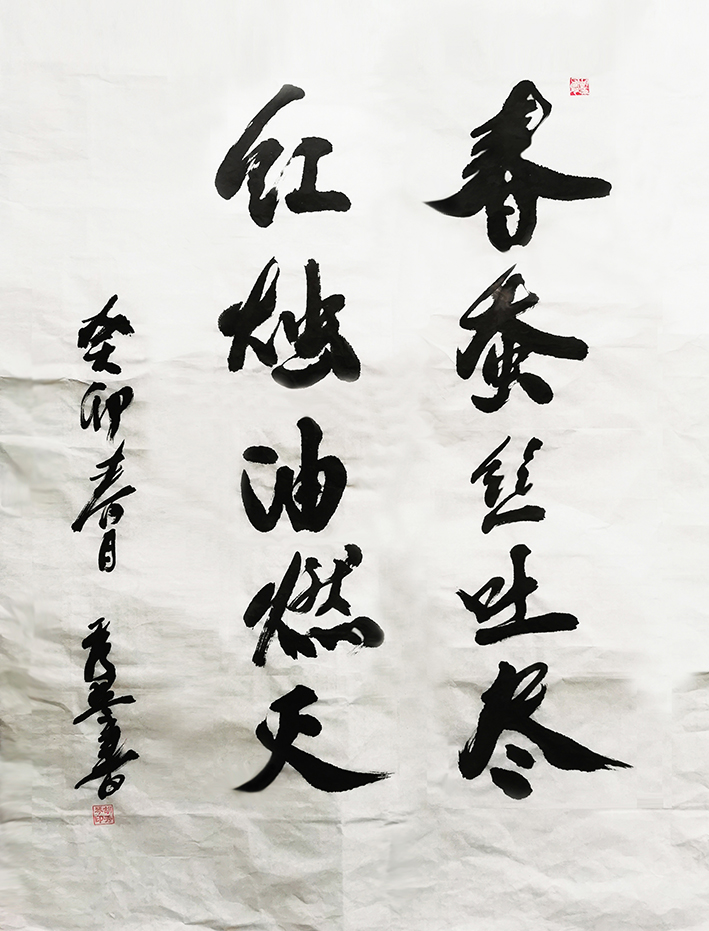 春蚕丝吐尽
红烛油燃灭
癸卯春月
书